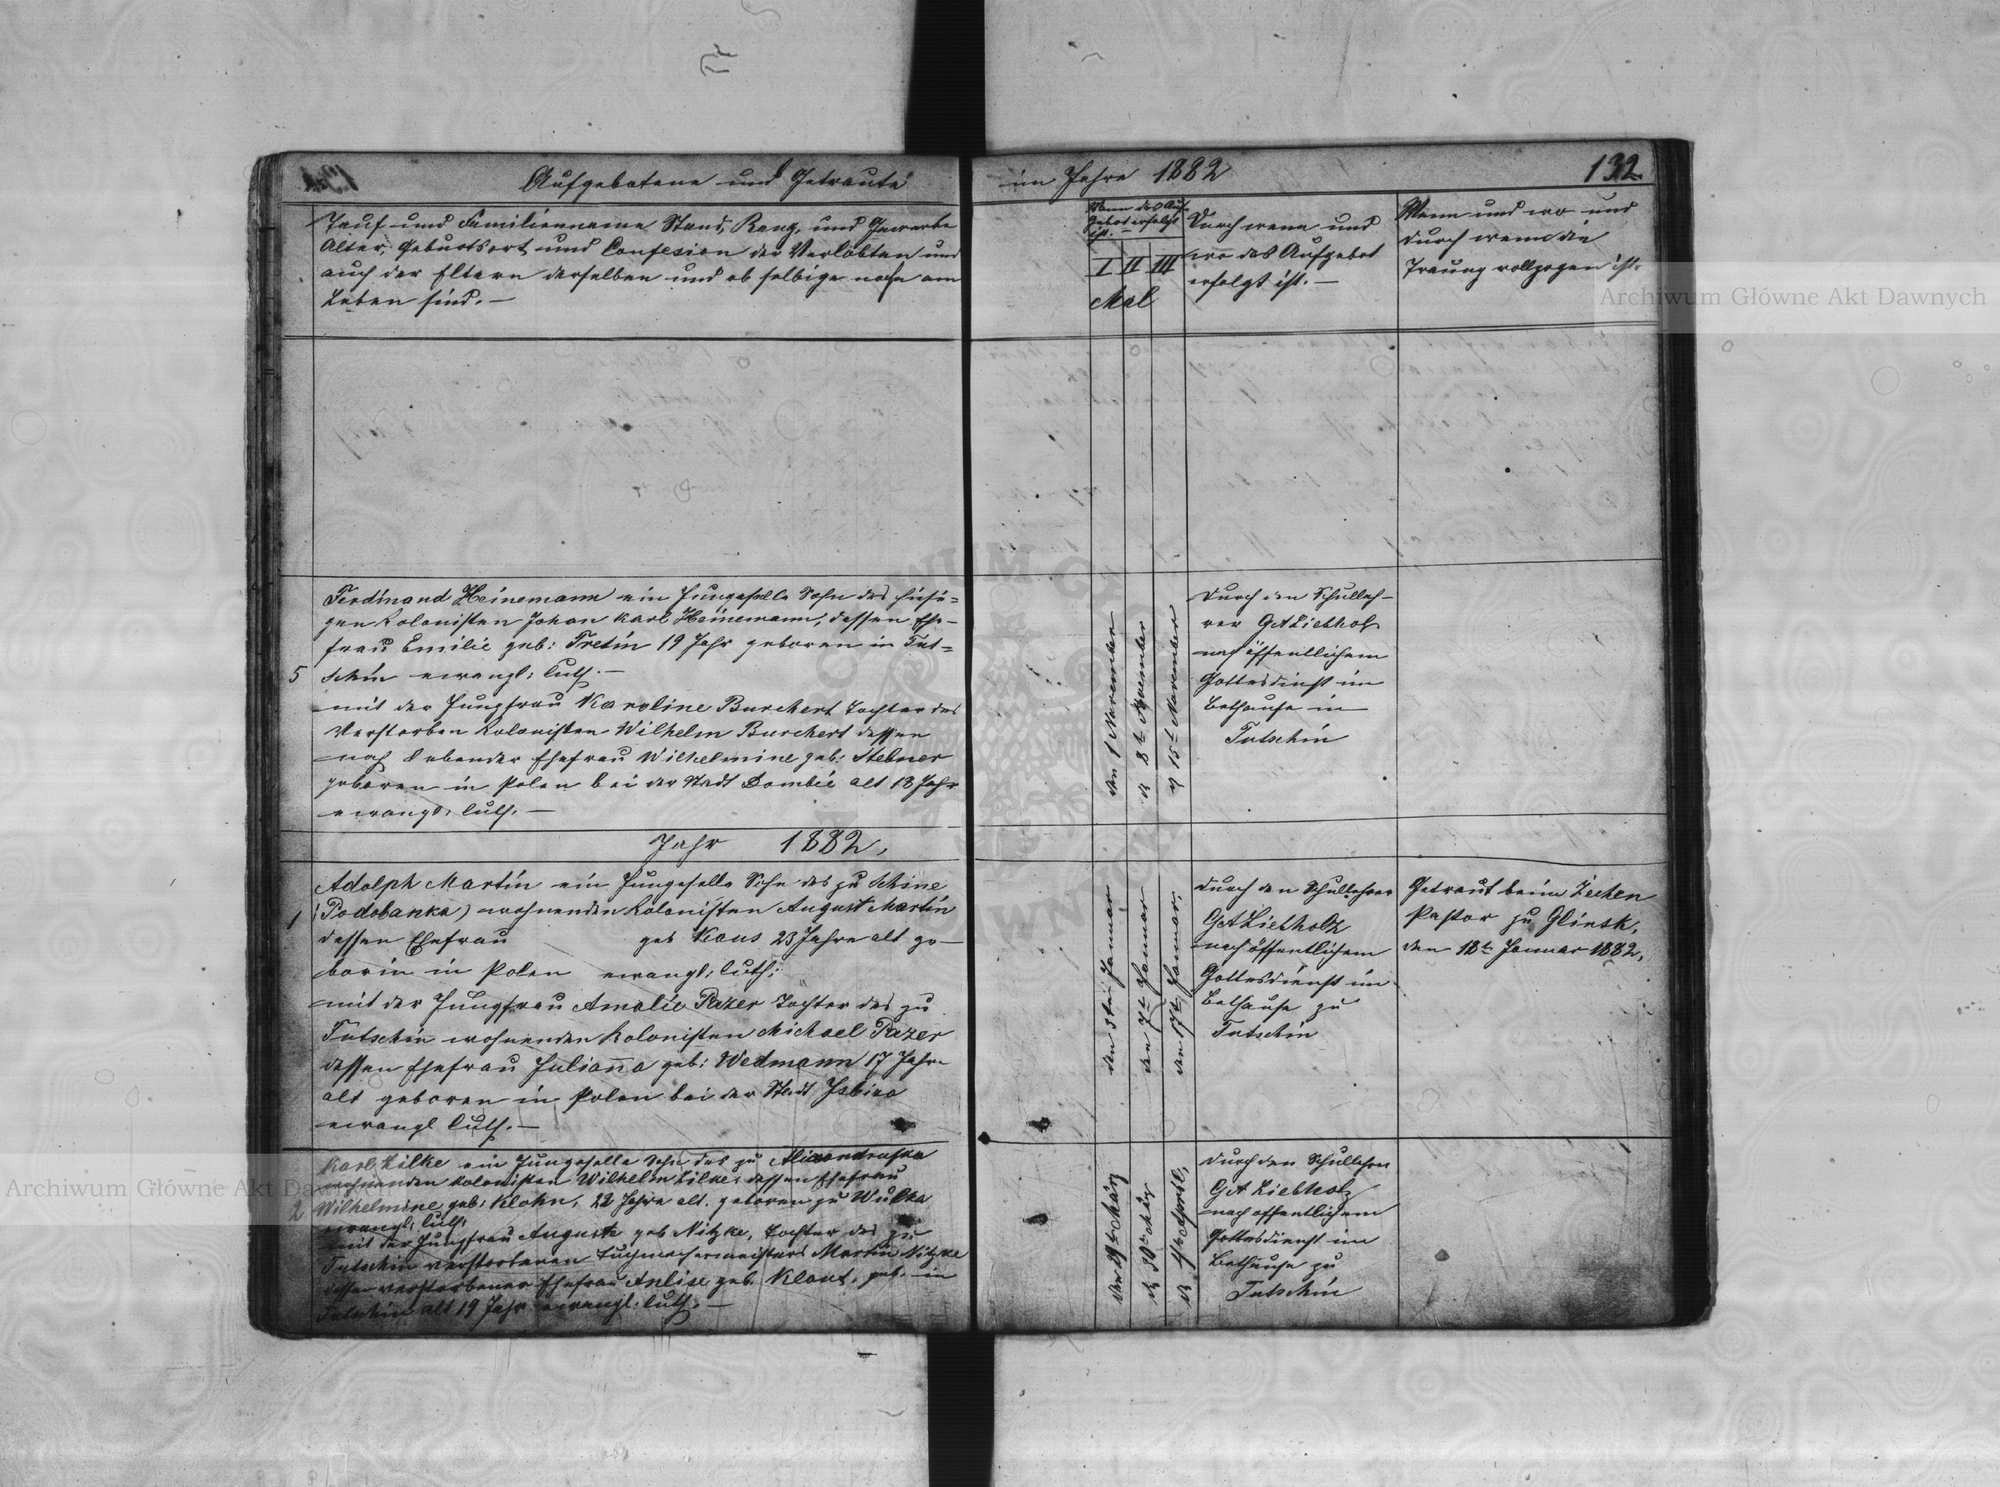 Aufgebotene und Getraute
im Jahre 1882
132
Tauf und Familienname Stand, Rang, und Gewerbe
Alter, Geburtsort und Confesion der Verlobten und
auch der Eltern derselben und ob selbige noch am
Leben sind. —
Wann das Auf-
gebot erfolgt
ist. —
I II III
Mal
Durch wenn und
wo das Aufgebot
erfolgt ist. —
Wann und wo und
durch wenn die
Trauung vollzogen ist.
5
Ferdinand Heinemann ein Jungeselle Sohn des hiesi=
gen Kolonisten Johan Karl Heinemann, dessen Ehe-
frau Emilie geb: Tretin 19 Jahr geboren in Tut=
schin ewangl: luth. —
mit der Jungfrau Karoline Burchert Tochter des
Verstorben Kolonisten Wilhelm Burchert dessen
noch lebender Ehefrau Wilhelmine geb: Stebner
geboren in Polen bei der Stadt Dombie alt 18 Jahr
ewangl. luth. —
den 1 November
d 8t November
d 15t November
Durch den Schulleh-
rer GA Liebholz
nach öffentlichem
Gottesdienst im
Bethause in
Tutschin
Jahr 1882,
1
Adolph Martin ein Jungeselle Sohn des zu
(Podobanka) wohnenden Kolonisten August Martin
dessen Ehefrau geb Kaus 23 Jahre alt ge-
boren in Polen ewangl: luth:
mit der Jungfrau Amalie Pazer Tochter des zu
Tutschin wohnenden Kolonisten Michael Pazer
dessen Ehefrau Julianna geb: Wedmann 17 Jahr
alt geboren in Polen bei der Stadt Isbica
ewangl luth. —
den 3ten Januar
den 7t Januar
den 17t Januar,
durch den Schullehrer
GA Liebholz
nach öffentlichem
Gottesdienst im
Bethause zu
Tutschin
Getraut beim
Pastor zu Glinsk,
den 18t Januar 1882,
2
Karl Lilke ein Jungeselle Sohn des zu Alexandrofka
wohnenden Kolonisten Wilhelm Lilke, dessen Ehefrau
Wilhelmine geb: Klohn, 22 Jahre alt. geboren zu Wulka
ewangl: luth:
mit der Jungfrau Auguste geb Nitzke, Tochter des zu
Tutschin verstorbenen Tuchmachermeisters Martin Nitzke
dessen verstorbener Ehefrau Anlise geb. Klaut, geb. in
Tutschin alt 19 Jahr ewangl: luth. —
den 29t März
d 30t März
d 4t April,
durch den Schullehrer
GA Liebholz
nach offentlichem
Gottesdienst im
Bethause zu
Tutschin
Archiwum Główne Akt Dawnych
Archiwum Główne Akt Dawnych